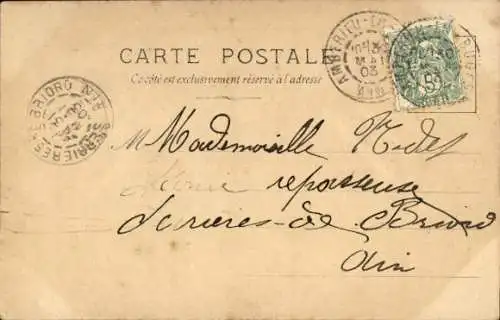 CARTE POSTALE
Ce côté est exclusivement réservé à l'adresse
AMBERIEU-EN-
AIN
03
5c
SERRIERES-DE-BRIORD
AIN
Mademoiselle
repasseuse
Serrières-de-Briord
Ain